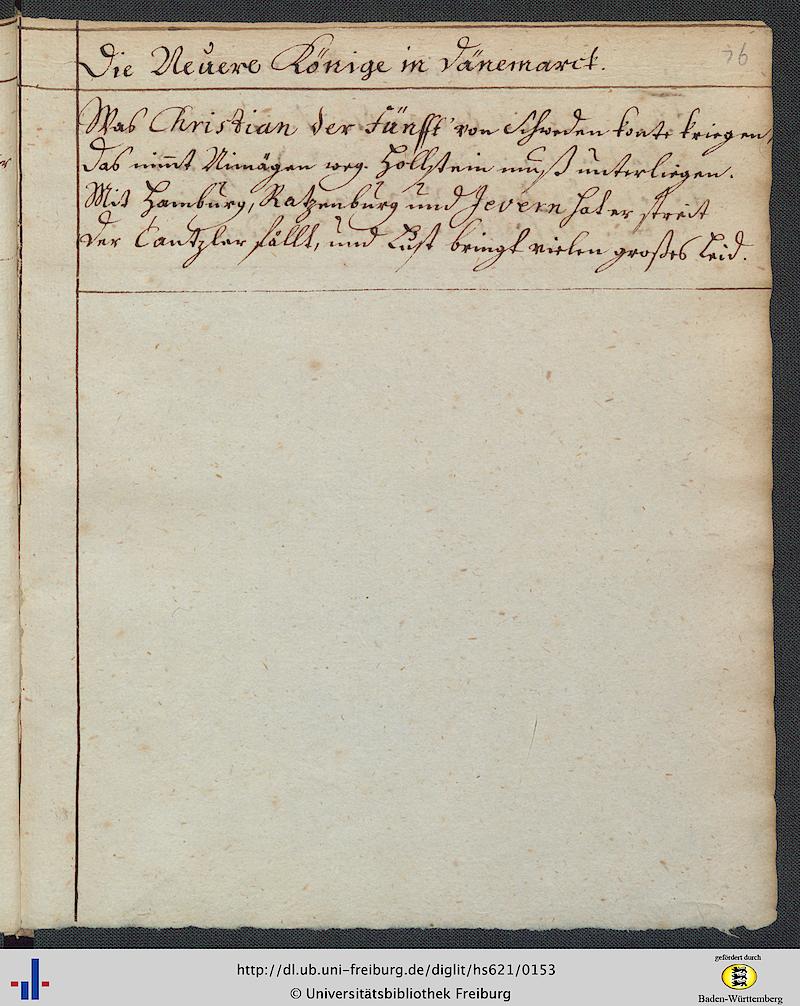 Die Neuere Könige in Dänemarck.
76
Was Christian der Fünfft' von Schweden konte kriegen,
das nimmt Nimägen weg. Hollstein muß unterliegen.
Mit Hamburg, Ratzenburg und Jevern hat er streit
der Cantzler fällt, und Lust bringt vielen großes Leid.
http://dl.ub.uni-freiburg.de/diglit/hs621/0153
© Universitätsbibliothek Freiburg
gefördert durch
Baden-Württemberg